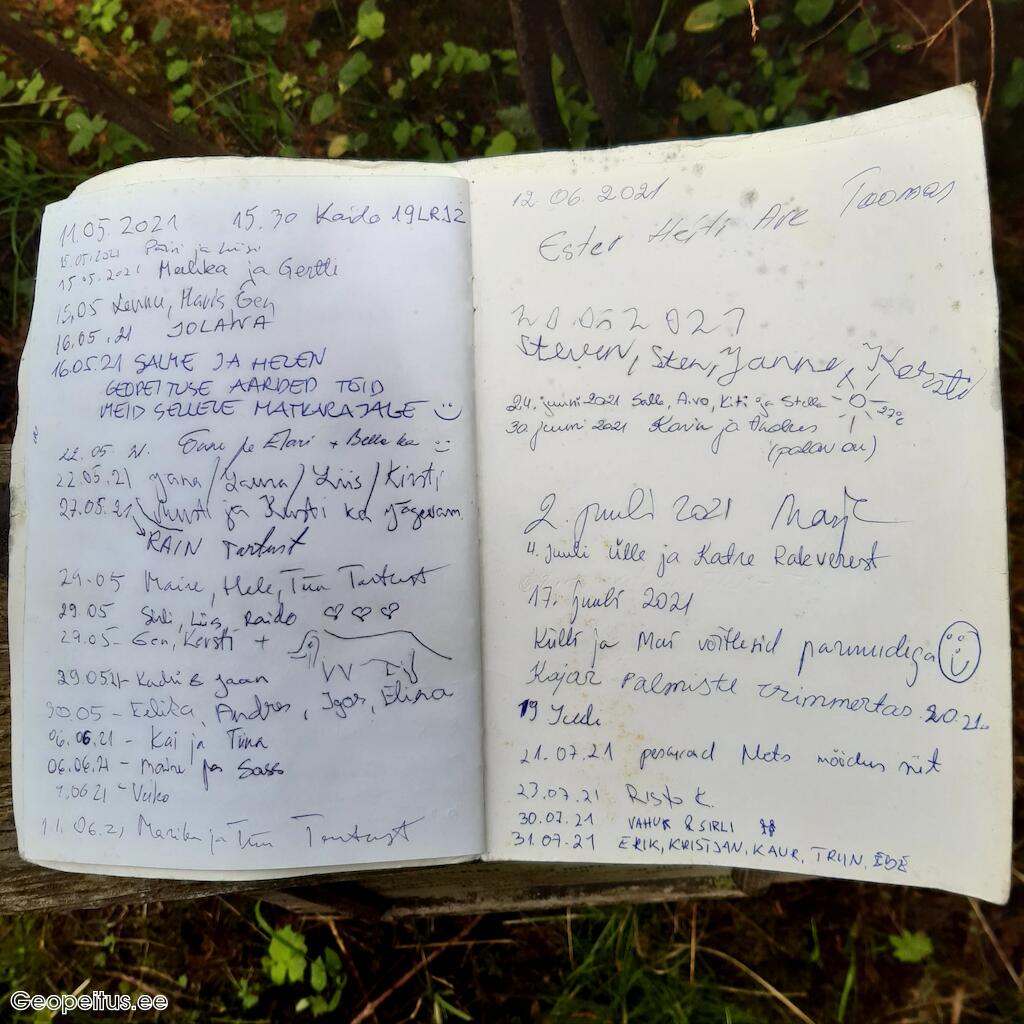 11.05.2021 15.30 Kaido 19LRJZ
15.05.2021 ja
15.05.2021 Malika ja Gertli
15.05 Lennu, Mavis, Gen
16.05.21 JOLANA
16.05.21 SALME JA HELEN
GEOPEITUSE AARDED TÕID
MEID SELLELE MATKARAJALE :)
22.05.21. ja Elari + Bella ka :)
22.05.21 Jana/Laura/Liis/Kirsti
27.05.21 ja Kirsti ka
RAIN Tartust
29.05 Maire, Hele, Tiiu Tartust
29.05 Sirli, Liis, Raido ♡ ♡ ♡
29.05- Gen, Kersti +
29.05.21- Kadri & Jaan
30.05 - Eelika, Andres, Igor, Elina
06.06.21 - Kai ja Tiina
06.06.21 - Maire ja Sass
7.06 21 - Veiko
11.06.21 Marika ja Tiiu Tartust
12.06.2021 Toomas
Ester Heiti Are
20.06 2021
Steven, Sten, Janne, Kersti
24. juuni 2021 Salle, Aivo, Kiti ja Stella 27°C
30 juuni 2021 Karin ja Andres
(palav on)
2. juuli 2021
4. juuli Ülle ja Katre Rakverest
17. juuli 2021
Külli ja Mai võitlesid parmudega
Kajar Palmiste trimmertas 2021.
19 Juuli
21.07.21 pesuraud Mets mõidus niit
23.07.21 Risto K.
30.07.21 VAHUR & SIRLI
31.07.21 ERIK, KRISTJAN, KAUR, TRIIN, EDE
Geopeitus.ee